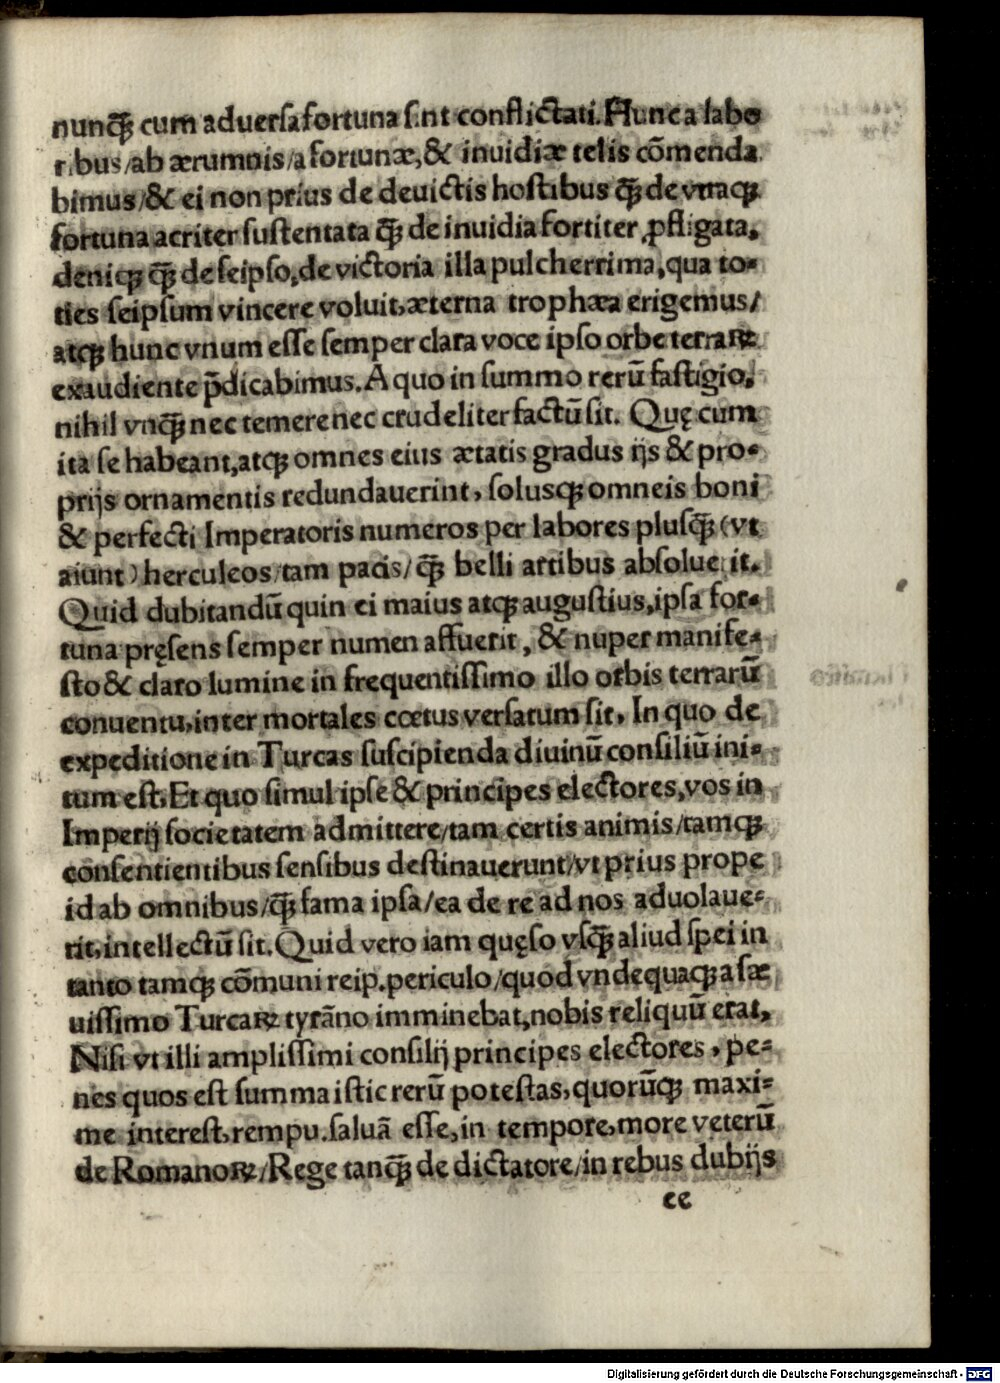 nunꝙ̃ cum aduersa fortuna sint conflictati. Hunc a labo
ribus/ab ærumnis/a fortunæ, & inuidiæ telis cõmenda
bimus/& ei non prius de deuictis hostibus ꝙ̃ de vtraqꝫ
fortuna acriter sustentata ꝙ̃ de inuidia fortiter ꝓfligata,
deniqꝫ ꝙ̃ de seipso, de victoria illa pulcherrima, qua to-
ties seipsum vincere voluit, æterna trophæa erigemus/
atqꝫ hunc vnum esse semper clara voce ipso orbe terraꝝ
exaudiente p̃dicabimus. A quo in summo rerũ fastigio,
nihil vnꝙ̃ nec temere nec crudeliter factũ sit. Quę cum
ita se habeant, atqꝫ omnes eius ætatis gradus ijs & pro-
prijs ornamentis redundauerint, solusqꝫ omneis boni
& perfecti Imperatoris numeros per labores plusꝙ̃ (vt
aiunt) herculeos/tam pacis/ꝙ̃ belli artibus absoluerit.
Quid dubitandũ quin ei maius atqꝫ augustius, ipsa for-
tuna pręsens semper numen affuerit, & nuper manife-
sto & claro lumine in frequentissimo illo orbis terrarũ
conuentu, inter mortales cœtus versatum sit, In quo de
expeditione in Turcas suscipienda diuinũ consiliũ ini-
tum est, Et quo simul ipse & principes electores, vos in
Imperij societatem admittere/tam certis animis/tamqꝫ
consentientibus sensibus destinauerunt/vt prius prope
id ab omnibus/ꝙ̃ fama ipsa/ea de re ad nos aduolaue-
rit, intellectũ sit. Quid vero iam quęso vsꝙ̃ aliud spei in
tanto tamqꝫ cõmuni reip. periculo/quod vndequaqꝫ a sæ
uissimo Turcaꝝ tyrãno imminebat, nobis reliquũ erat,
Nisi vt illi amplissimi consilij principes electores, pe-
nes quos est summa istic rerũ potestas, quorũqꝫ maxi-
me interest, rempu. saluã esse, in tempore, more veterũ
de Romanoꝝ/Rege tanꝙ̃ de dictatore/in rebus dubijs
cc
Digitalisierung gefördert durch die Deutsche Forschungsgemeinschaft - DFG